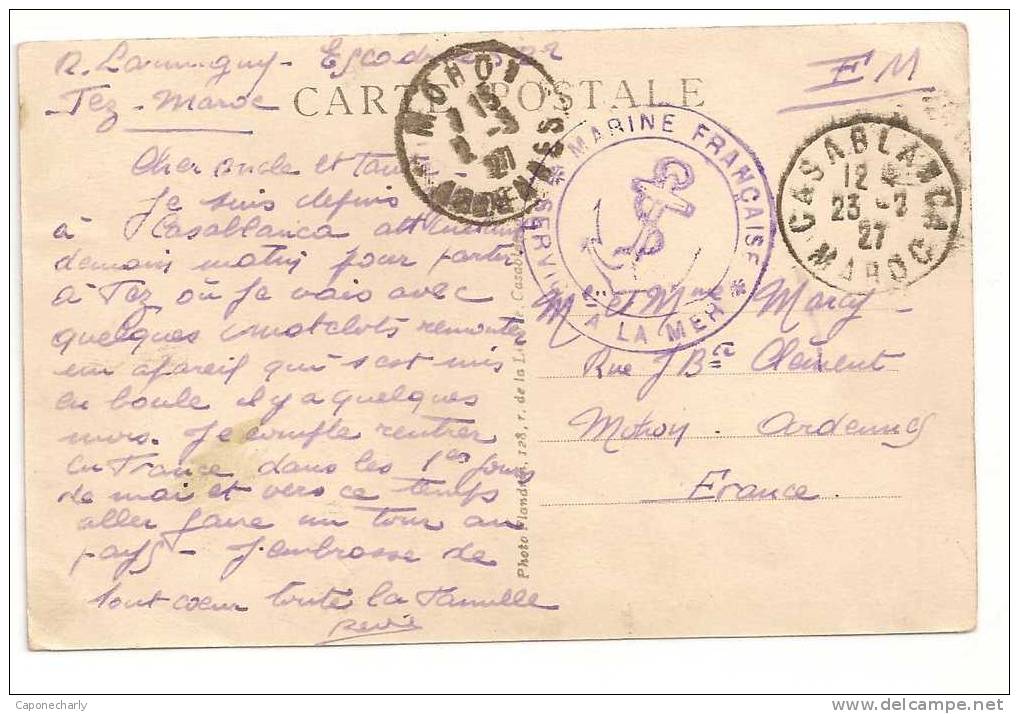 R. Escadre
Fez - Maroc
CARTE POSTALE
F M
MOHON
15
2 - 3
27
ARDENNES
* MARINE FRANÇAISE *
SERVICE A LA MER
CASABLANCA
12
23 - 2
27
MAROC
Cher oncle et
Je suis depuis
à Casablanca attendant
demain matin pour partir
à Fez où je vais avec
quelques matelots remonter
un apareil qui s'est mis
en boule il y a quelques
mois. Je compte rentrer
en France dans les 1ers jours
de mai et vers ce temps
aller faire un tour au
pays - J'embrasse de
tout coeur toute la famille
René
Mr et Mme Marcy
Rue J Bte Clément
Mohon - Ardennes
France
Photo Flandrin, 128, r. de la Casablanca
Caponecharly
delcampe.net